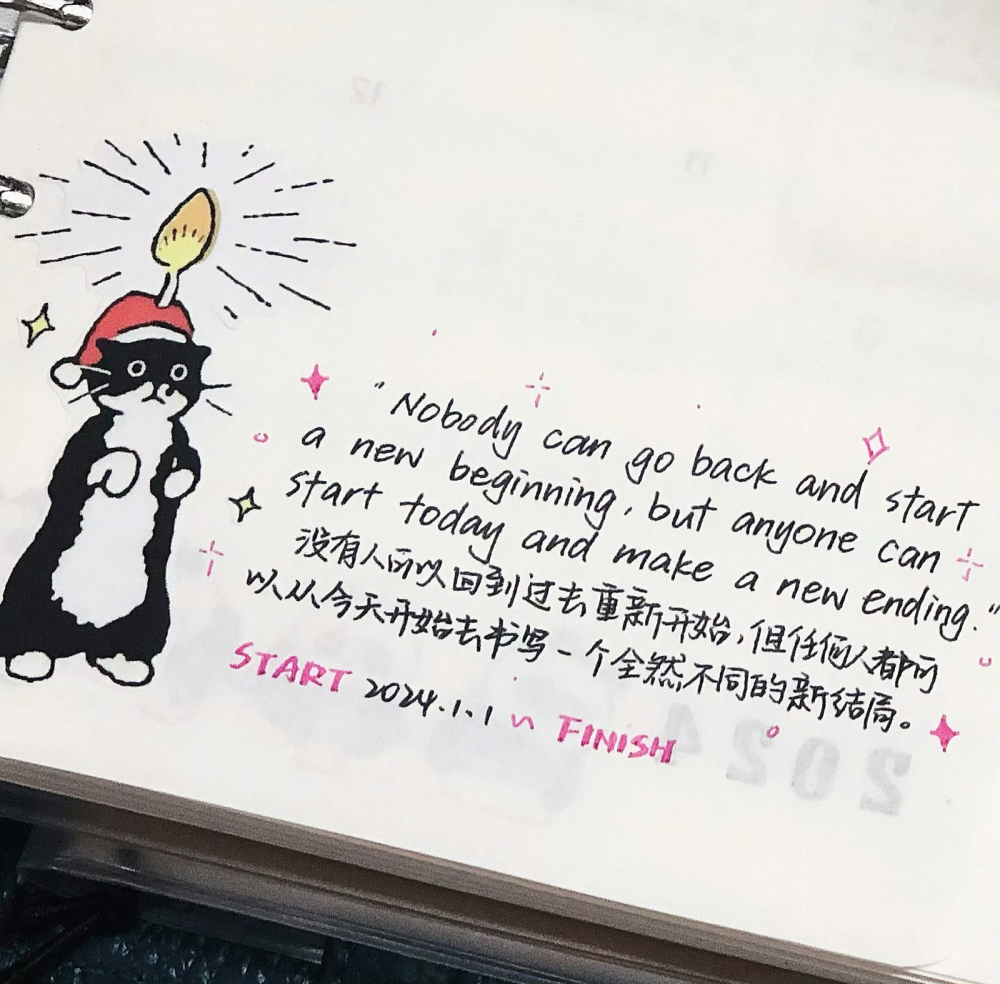 "Nobody can go back and start
a new beginning, but anyone can
start today and make a new ending."
没有人可以回到过去重新开始,但任何人都可
以从今天开始去书写一个全然不同的新结局。
START 2024.1.1 ~ FINISH
2024
12
11